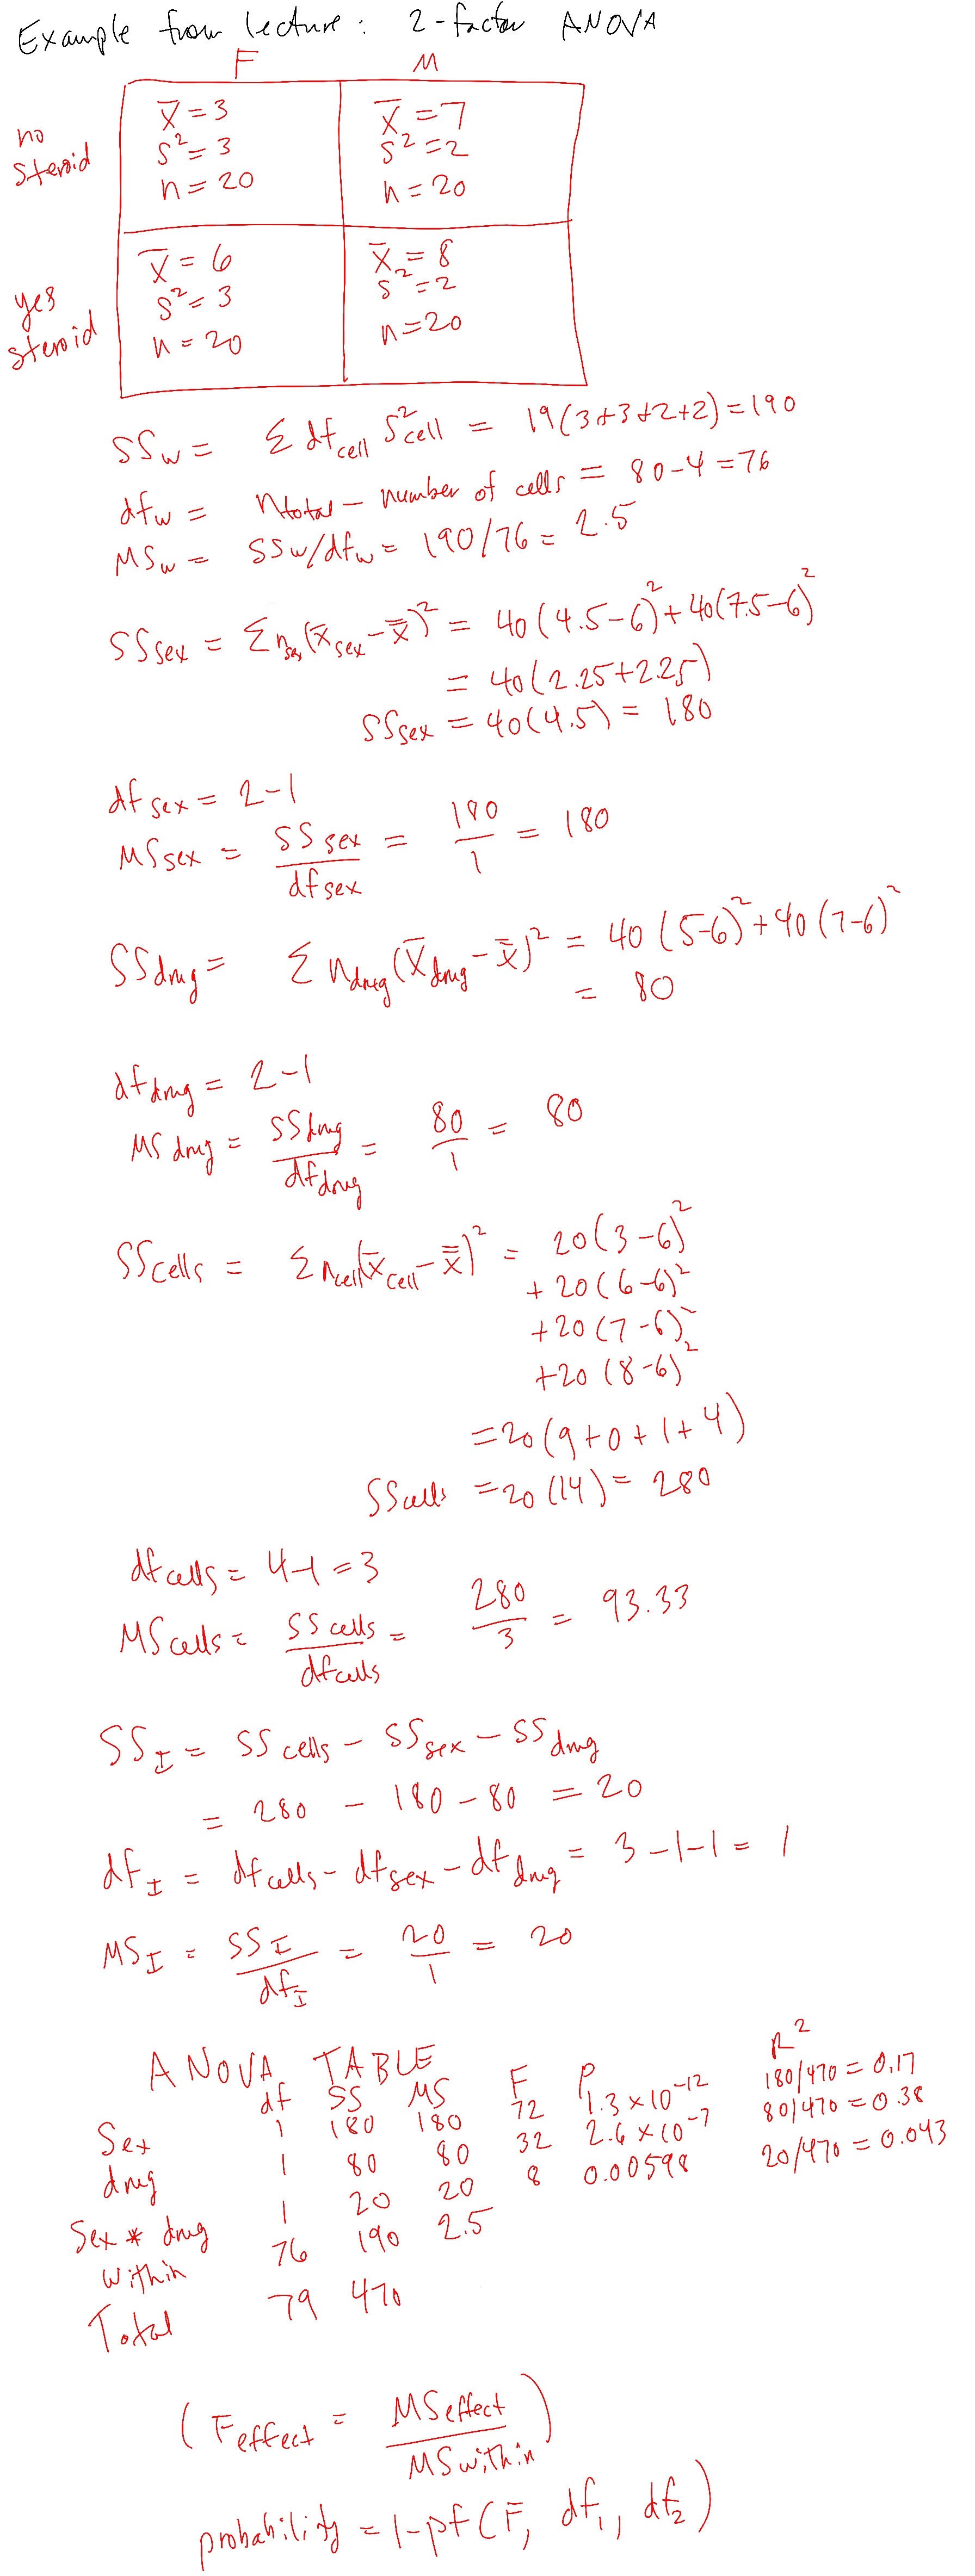 Example from lecture: 2-factor ANOVA
F M
no steroid
x̄ = 3
s² = 3
n = 20
x̄ = 7
s² = 2
n = 20
yes steroid
x̄ = 6
s² = 3
n = 20
x̄ = 8
s² = 2
n = 20
SSw = Σ dfcell s²cell = 19(3+3+2+2) = 190
dfw = ntotal - number of cells = 80-4 = 76
MSw = SSw/dfw = 190/76 = 2.5
SSsex = Σ nsex(x̄sex - x̿)² = 40(4.5-6)² + 40(7.5-6)²
= 40(2.25+2.25)
SSsex = 40(4.5) = 180
dfsex = 2-1
MSsex = SSsex/dfsex = 180/1 = 180
SSdrug = Σ ndrug(x̄drug - x̿)² = 40(5-6)² + 40(7-6)²
= 80
dfdrug = 2-1
MSdrug = SSdrug/dfdrug = 80/1 = 80
SScells = Σ ncell(x̄cell - x̿)² = 20(3-6)²
+20(6-6)²
+20(7-6)²
+20(8-6)²
=20(9+0+1+4)
SScells =20(14) = 280
dfcells = 4-1 = 3
MScells = SScells/dfcells = 280/3 = 93.33
SSI = SScells - SSsex - SSdrug
= 280 - 180 - 80 = 20
dfI = dfcells - dfsex - dfdrug = 3-1-1 = 1
MSI = SSI/dfI = 20/1 = 20
ANOVA TABLE
df SS MS F P R²
Sex 1 180 180 72 1.3×10⁻¹² 180/470 = 0.17
drug 1 80 80 32 2.6×10⁻⁷ 80/470 = 0.38
Sex * drug 1 20 20 8 0.00598 20/470 = 0.043
Within 76 190 2.5
Total 79 470
(Feffect = MSeffect/MSwithin)
probability = 1-pf(F, df₁, df₂)